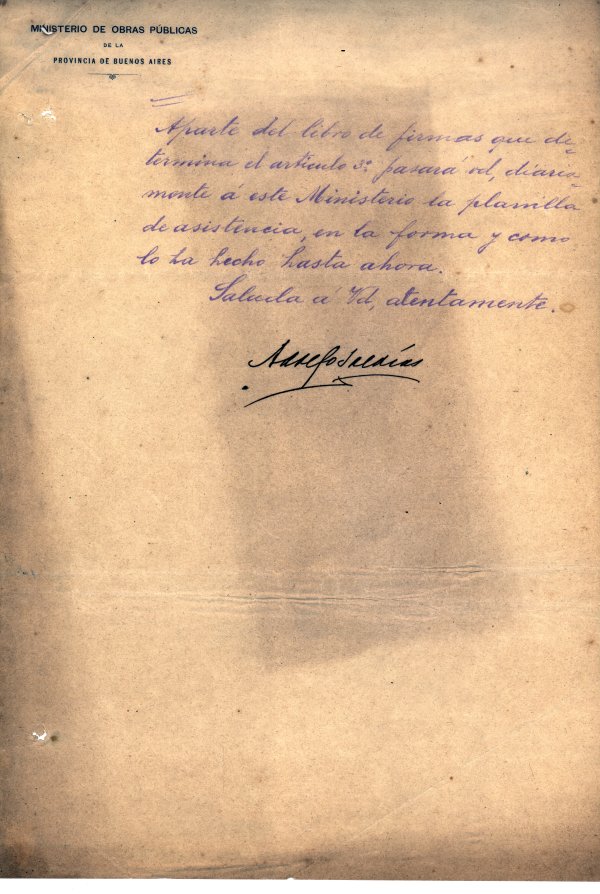 MINISTERIO DE OBRAS PÚBLICAS
DE LA
PROVINCIA DE BUENOS AIRES
Aparte del libro de firmas que de-
termina el artículo 3º, pasará vd, diaria-
mente á este Ministerio la planilla
de asistencia, en la forma y como
lo ha hecho hasta ahora.
Saluda á Vd, atentamente.
Adolfo Saldías